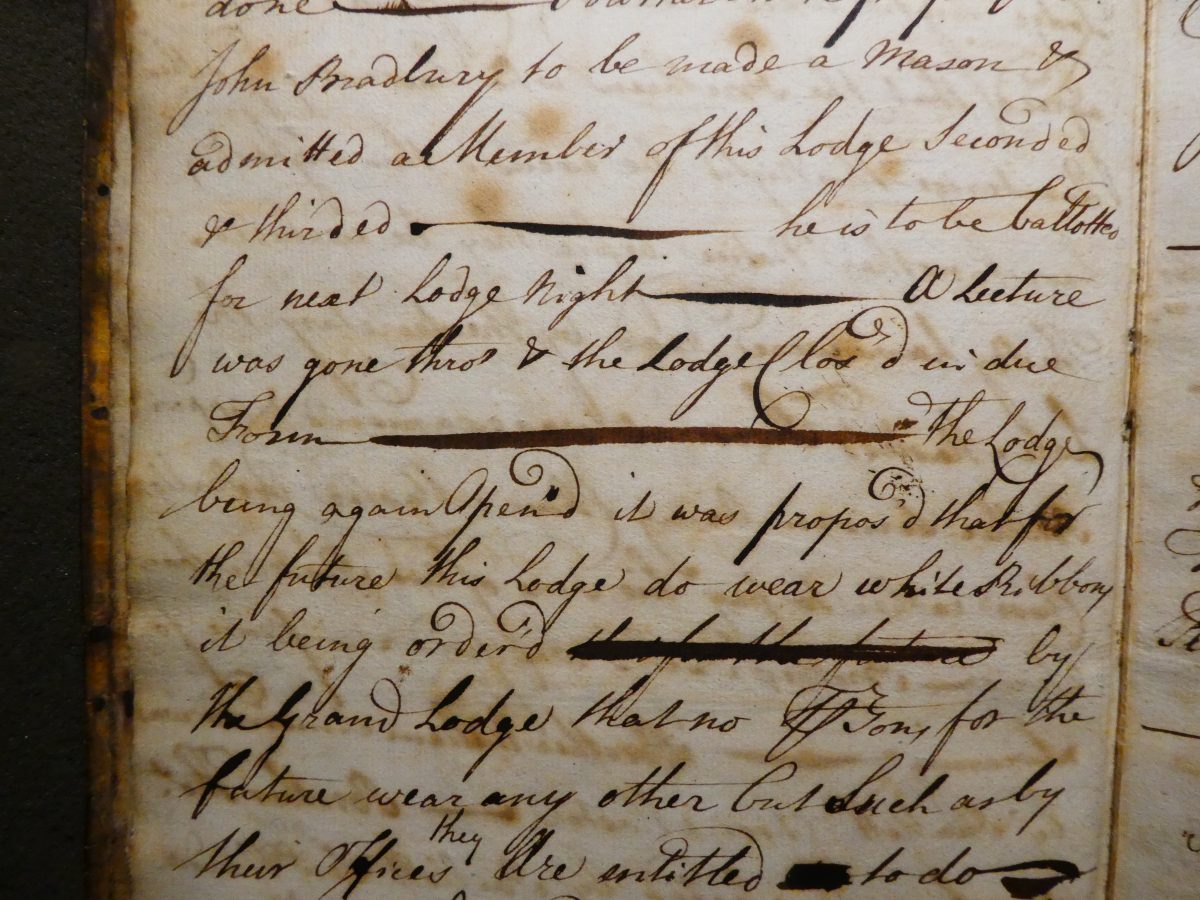 done
John Bradbury to be made a Mason &
admitted a Member of this Lodge Seconded
& thirded he is to be ballotted
for next Lodge Night A Lecture
was gone thro' & the Lodge Clos'd in due
Form The Lodge
being again Open'd it was propos'd that for
the future this Lodge do wear white Ribbons
it being order'd that for the future by
the Grand Lodge that no for the
future wear any other but Such as by
their Offices they Are entitled to do